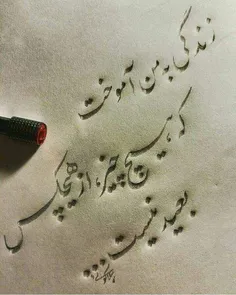 زندگی به من آموخت
که هیچ چیز، از هیچکس
بعید نیست...